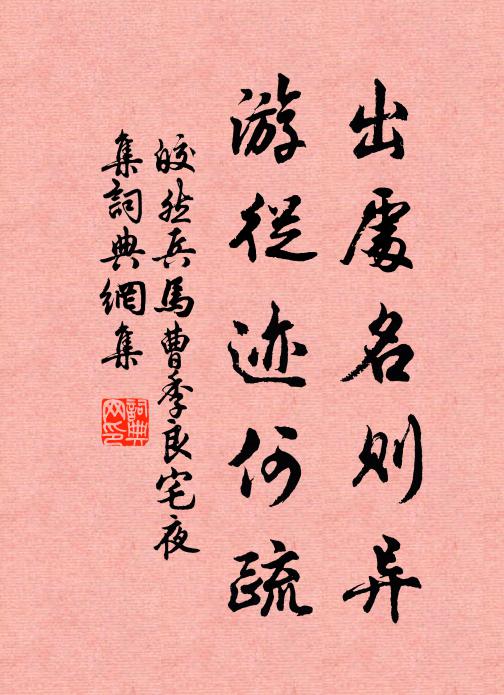 出處名則异
游從迹何疏
皎然兵馬曹季良宅夜
集詞典網集
詞典
网印